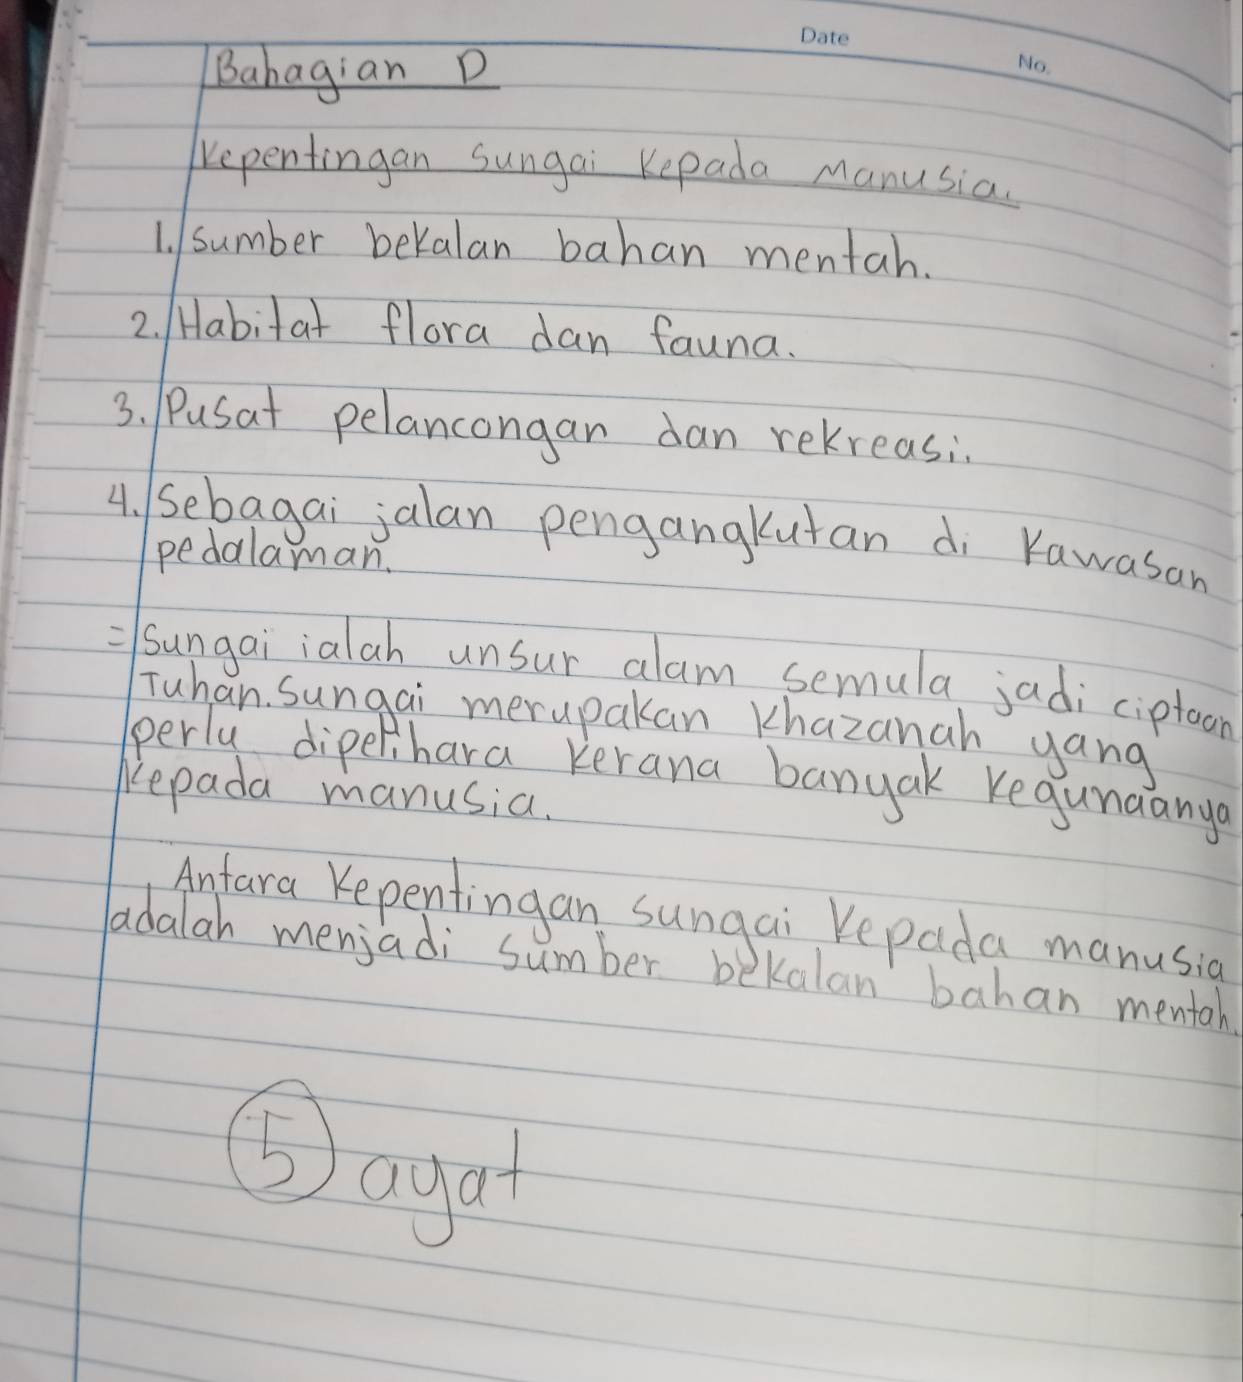 Date
No.
Bahagian D
Kepentingan Sungai Kepada Manusia.
1. Sumber bekalan bahan mentah.
2. Habitat flora dan fauna.
3. Pusat pelancongan dan rekreasi.
4. Sebagai jalan pengangkutan di kawasan
pedalaman.
= Sungai ialah unsur alam semula jadi ciptaan
Tuhan. Sungai merupakan khazanah yang
perlu dipelihara kerana banyak kegunaanya
kepada manusia.
Antara kepentingan sungai kepada manusia
adalah menjadi sumber bekalan bahan mentah.
5 ayat